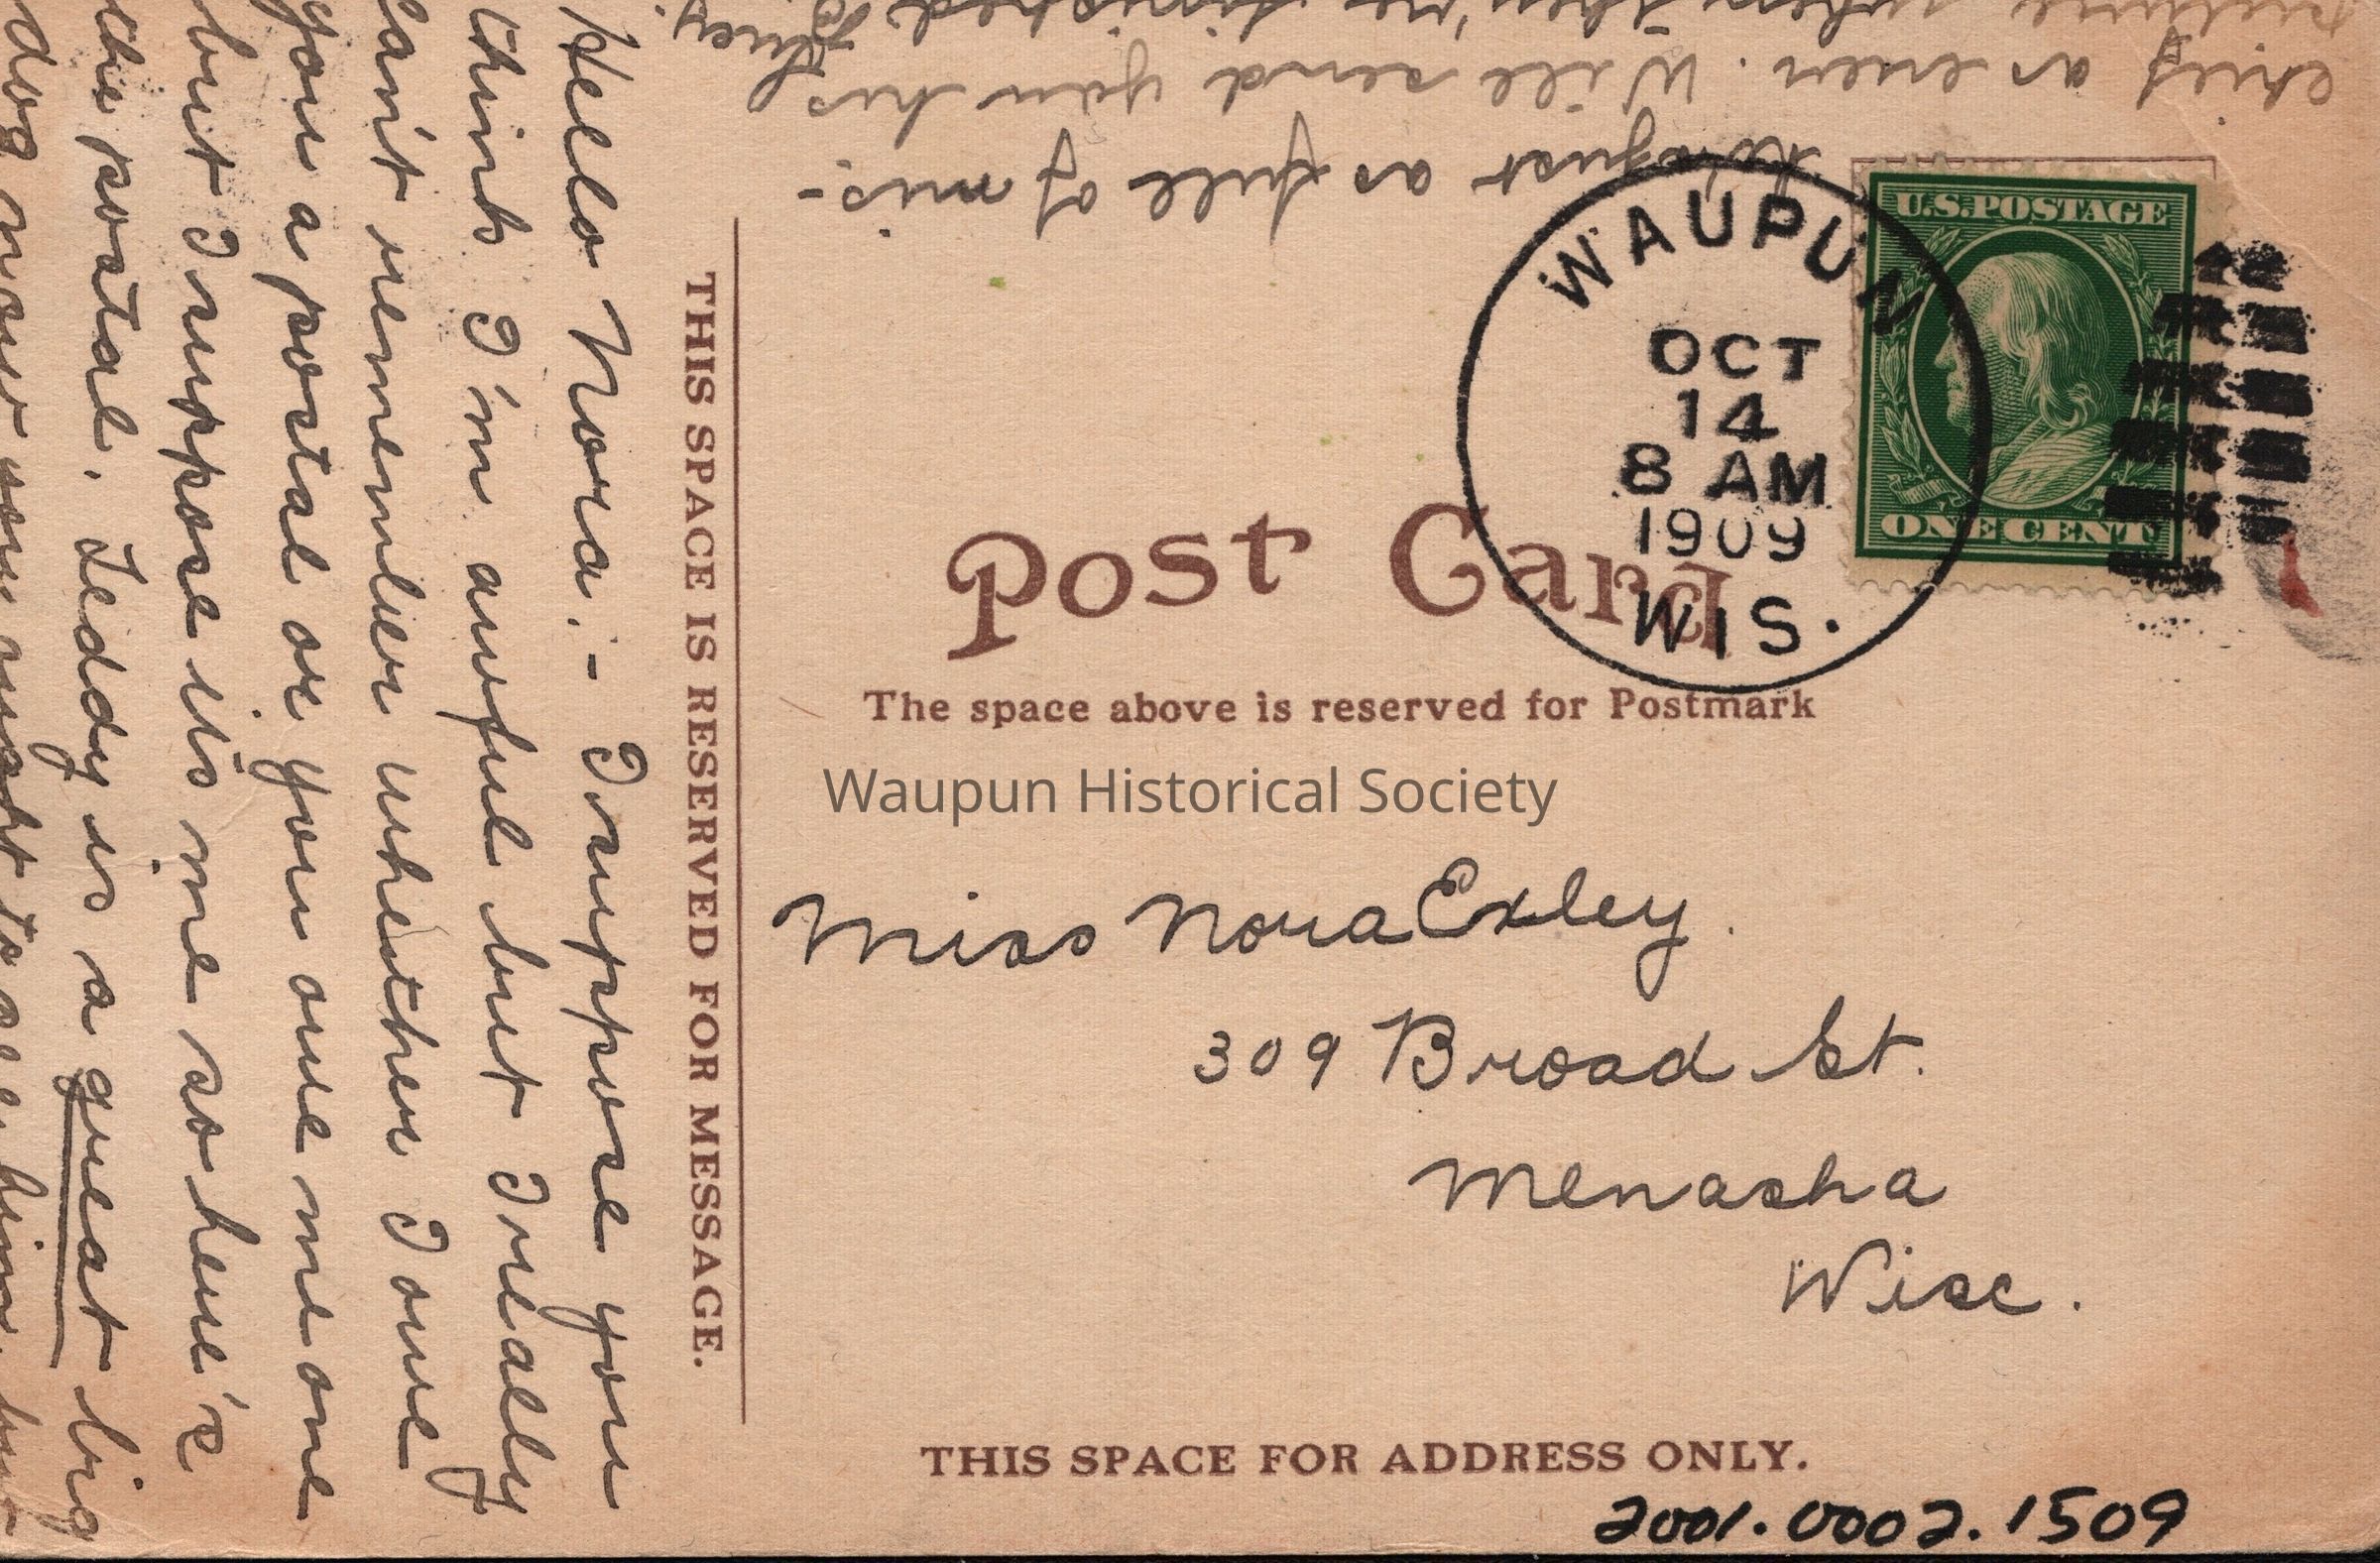 Hello Nora:- I suppose you
think I'm awful but I really
can't remember whether I owe
you a postal or you owe me one
but I suppose its me so here's
the postal. Teddy is a great big
dog now you ought to see him but
just as full of mis-
chief as ever. Will send you his
picture when they're finished
THIS SPACE IS RESERVED FOR MESSAGE.
U.S. POSTAGE
ONE CENT
WAUPUN
OCT
14
8 AM
1909
WIS.
Post Card
The space above is reserved for Postmark
Waupun Historical Society
Miss Nora Exley.
309 Broad St.
Menasha
Wisc.
THIS SPACE FOR ADDRESS ONLY.
2001.0002.1509